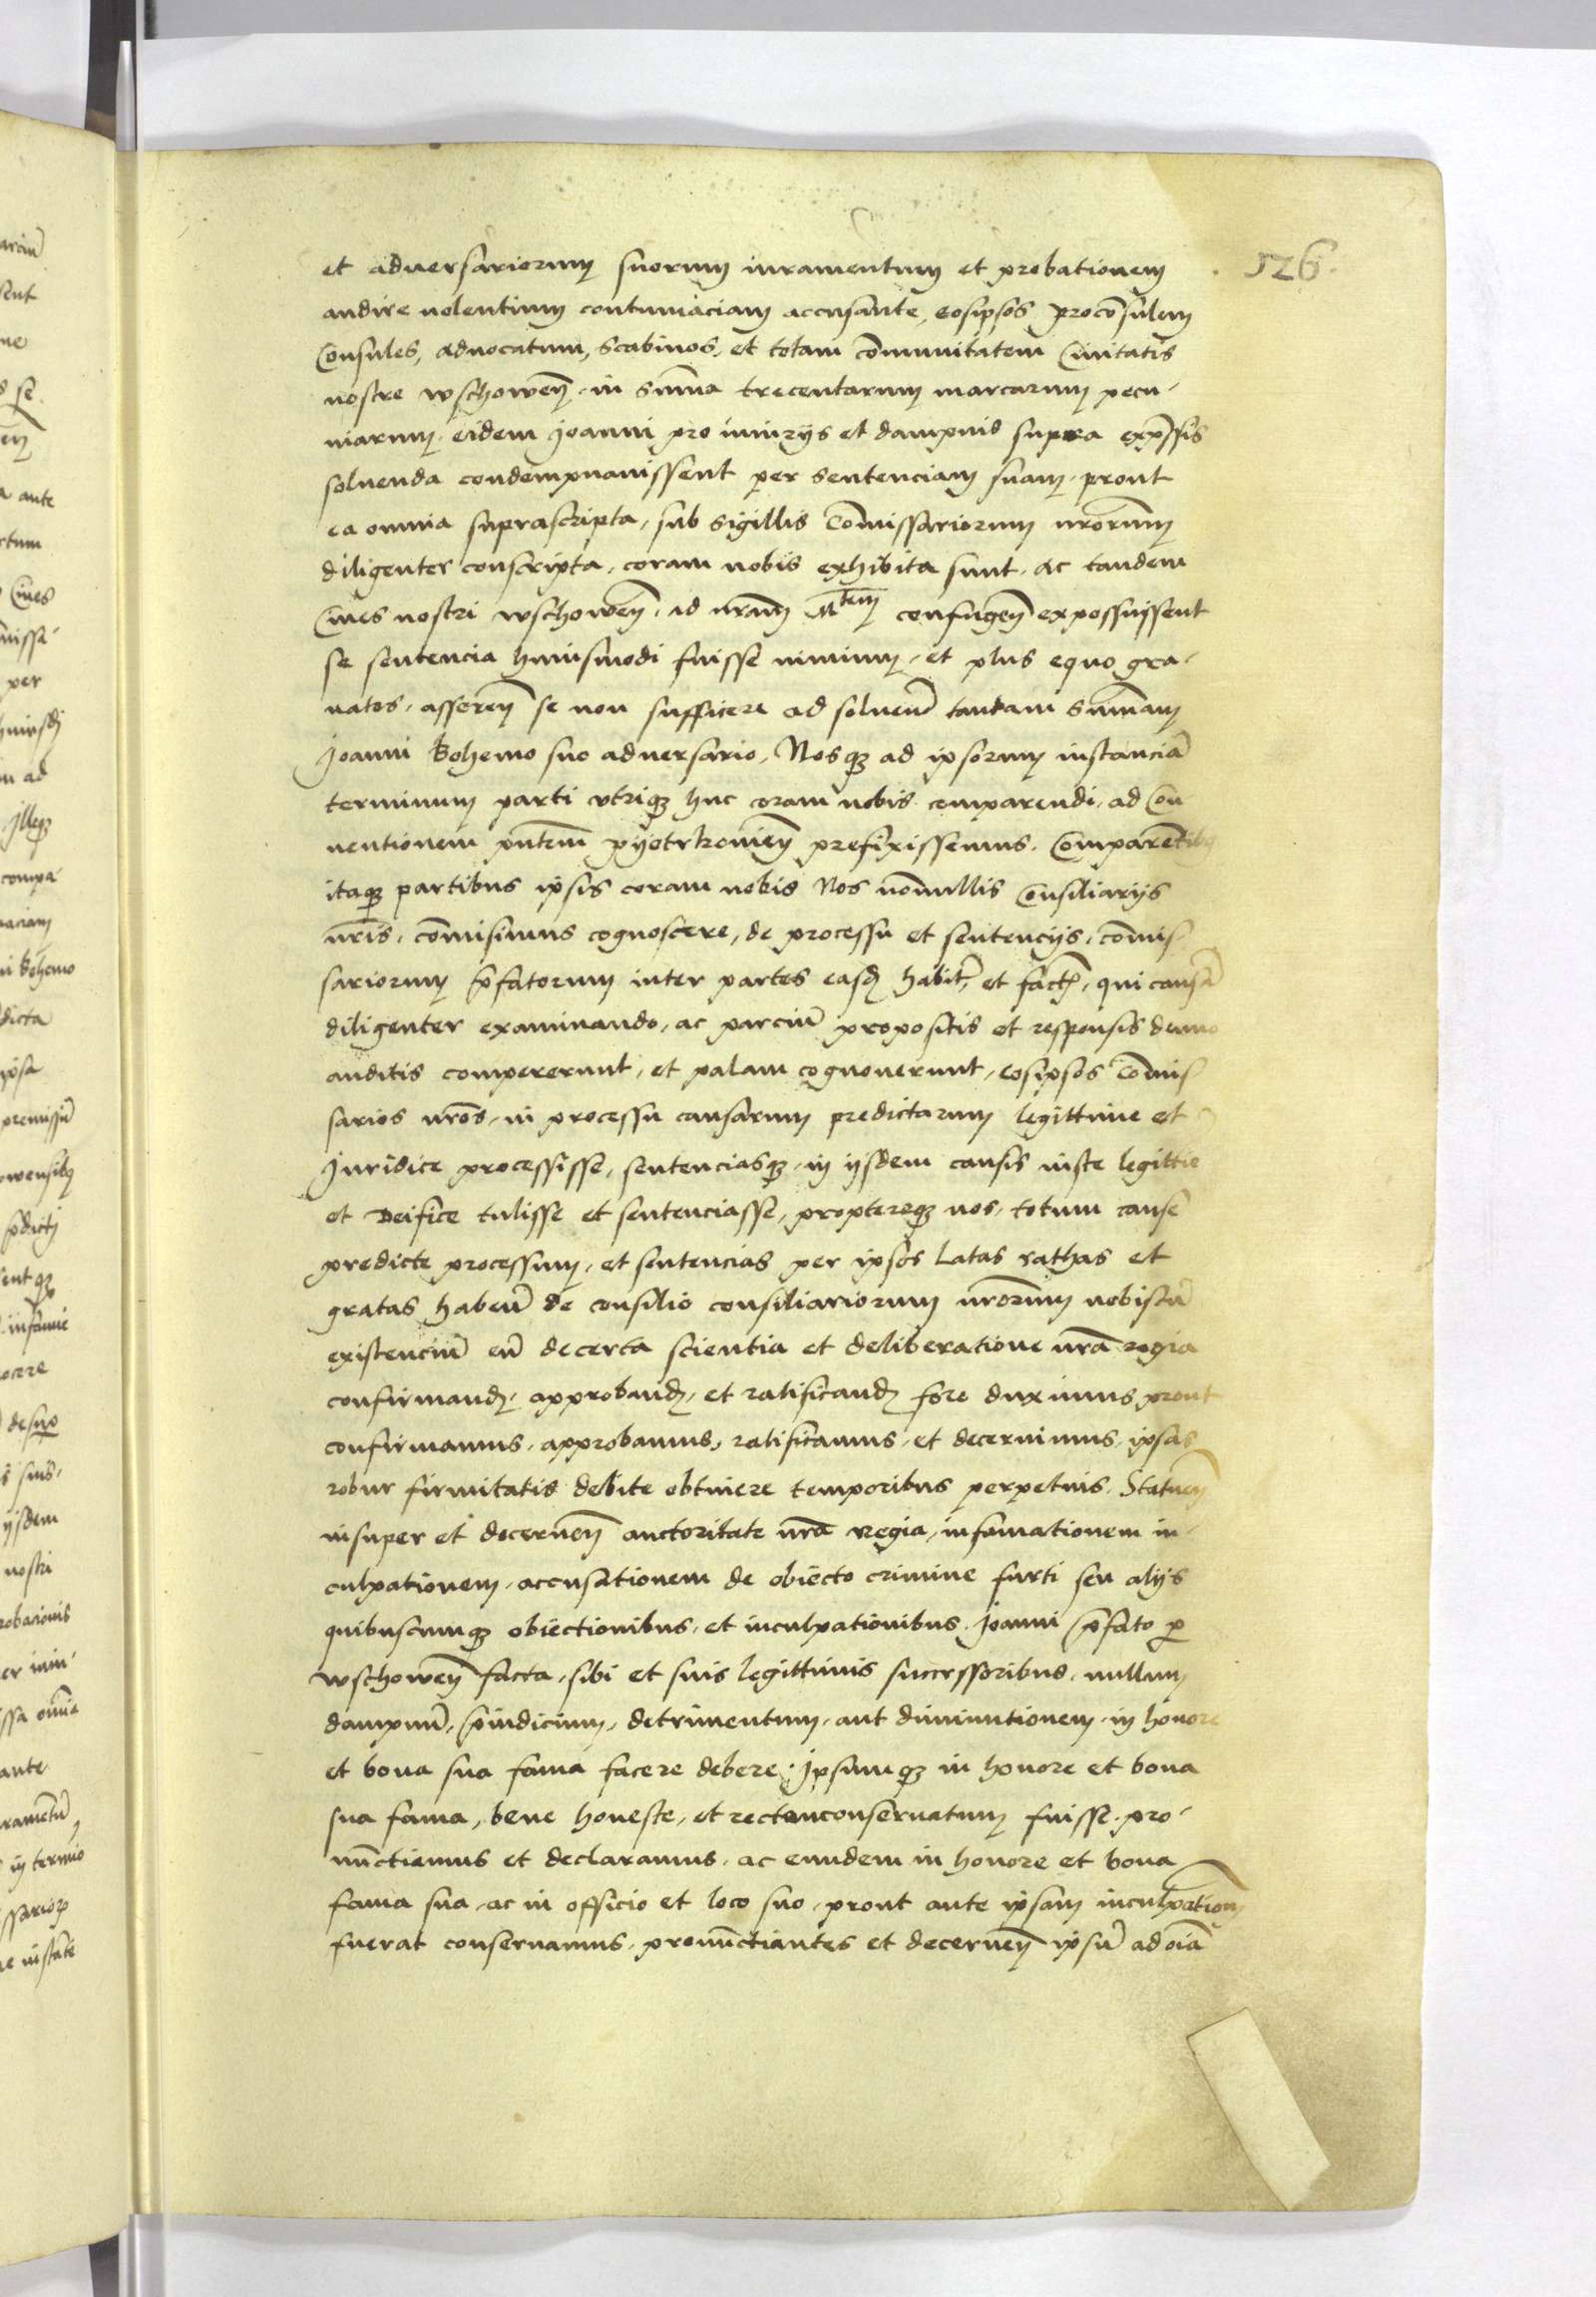 126.
et adversariorum suorum iuramentum et probationem
audire nolentium contumaciam accusante, eosipsos procōsulem
Consules, advocatum, scabinos, et totam cōmunitatem Civitatis
nostre wschoweñ. in sum̄a trecentarum marcarum pecu-
niarum. eidem Joanni pro iniurijs et dampnis supra exp̄ssis
solvenda condempnavissent per sentenciam suam. prout
ea omnia suprascripta, sub sigillis Com̄issariorum nr̄orum
diligenter conscripta, coram nobis exhibita sunt. Ac tandem
Cives nostri wschoweñ. ad nr̄am Mtem confugeñ expossuissent
se sentencia huiusmodi fuisse nimium, et plus equo gra-
vatos, assereñ se non sufficere ad solvend̄ tantam sum̄am
Joanni Bohemo suo adversario, Nosqꝫ ad ipsorum instanciā
terminum parti utriqꝫ huc coram nobis comparendi, ad Con
ventionem pn̄tem pyotrkovieñ prefixissemus. Comparentibꝫ
itaqꝫ partibus ipsis coram nobis Nos nōnullis Consiliarijs
nr̄is, com̄isimus cognoscere, de processu et sentencijs, com̄is-
sariorum p̄fatorum inter partes easd̄ habit̄, et fact̄, qui causā
diligenter examinando, ac parciū propositis et responsis denuo
auditis compererunt, et palam cognoverunt, eosipsos Com̄is-
sarios nr̄os, in processu causarum predictarum legittime et
Juridice processisse, sentenciasqꝫ, in ijsdem causis iuste legittie
et Deifice tulisse et sentenciasse, proptereaqꝫ nos, totum cause
predicte processum, et sentencias per ipsos latas rathas et
gratas habeñ de consilio consiliariorum nr̄orum nobiscū
existenciū eā decerta scientia et deliberatione nr̄a regia
confirmand̄, approband̄, et ratificand̄ fore duximus prout
confirmamus, approbamus, ratificamus, et decernimus, ipsas
robur firmitatis debite obtinere temporibus perpetuis. Statueñ
insuper et decerneñ auctoritate nr̄a Regia, infamationem in-
culpationem, accusationem de obiecto crimine furti seu alijs
quibuscumqꝫ obiectionibus, et inculpationibus. Joanni p̄fato ꝑ
wschoweñ facta, sibi et suis legittimis successoribus, nullum
dampnū, p̄iudicium, detrimentum, aut diminutionem, in honore
et bona sua fama facere debere. Ipsumqꝫ in honore et bona
sua fama, bene honeste, et recte conservatum fuisse. pro-
nūctiamus et declaramus, ac eundem in honore et bona
fama sua, ac in officio et loco suo, prout ante ipsam inculpationem
fuerat conservamus, pronūctiantes et decerneñ ipsū ad oīa